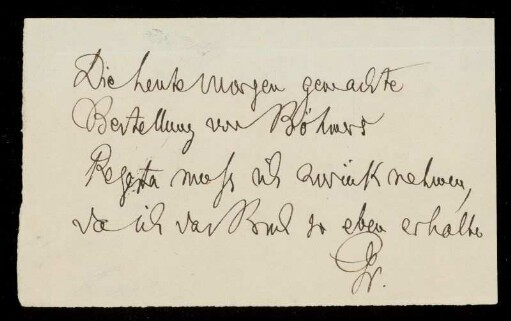 Die heute Morgen gemachte
Bestellung von Böhmers
Regesta muß ich zurück nehmen,
da ich das Buch so eben erhalte
Gr.